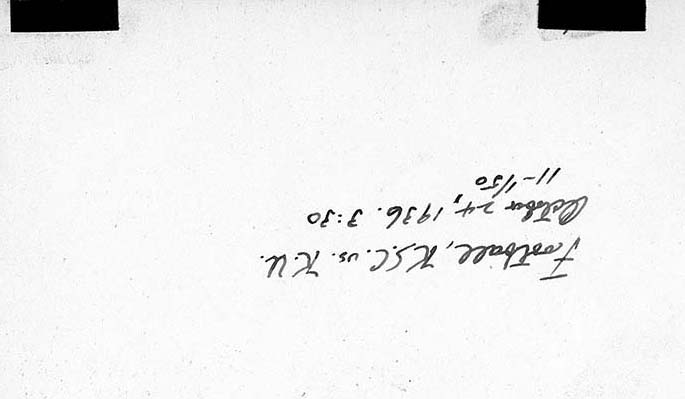 Football, K.S.C. vs. K.U.
October 24, 1936. 3:30
11-1/50